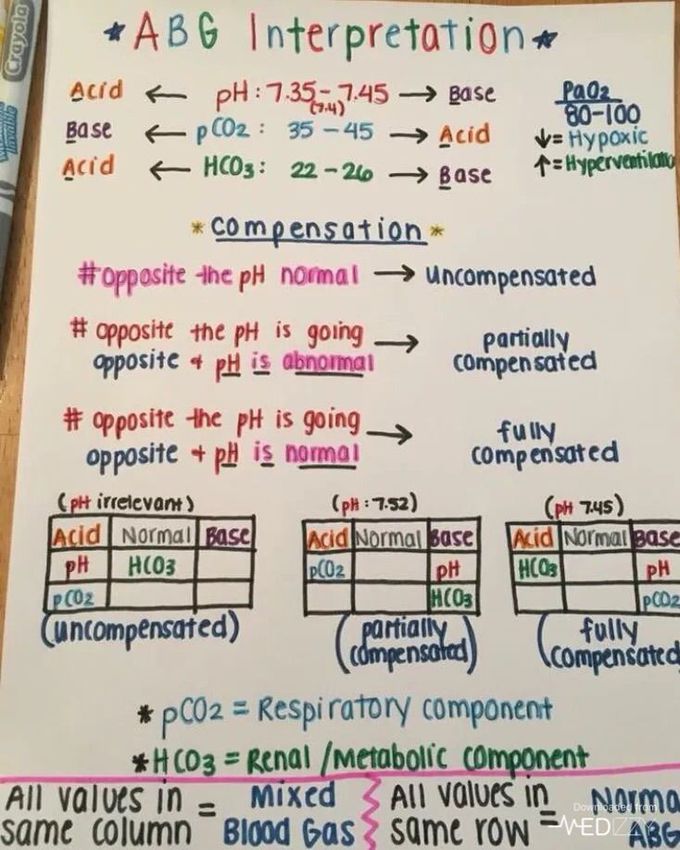 Crayola
*ABG Interpretation*
Acid ← pH: 7.35-7.45 → Base
(7.4)
PaO2
80-100
Base ← pCO2: 35-45 → Acid
↓= Hypoxic
Acid ← HCO3: 22-26 → Base
↑=Hyperventilatio
*compensation*
#opposite the pH normal → uncompensated
# opposite the pH is going → partially
opposite + pH is abnormal compensated
# opposite the pH is going → fully
opposite + pH is normal compensated
(pH irrelevant)
Acid Normal Base
pH HCO3
pCO2
(uncompensated)
(pH: 7.52)
Acid Normal Base
pCO2 pH
HCO3
(partially
compensated)
(pH 7.45)
Acid Normal Base
HCO3 pH
pCO2
(fully
compensated
* pCO2 = Respiratory component
*HCO3 = Renal/Metabolic component
All values in = Mixed
same column Blood Gas
All values in = Norma
same row ABG
Downloaded from
MEDIZZY